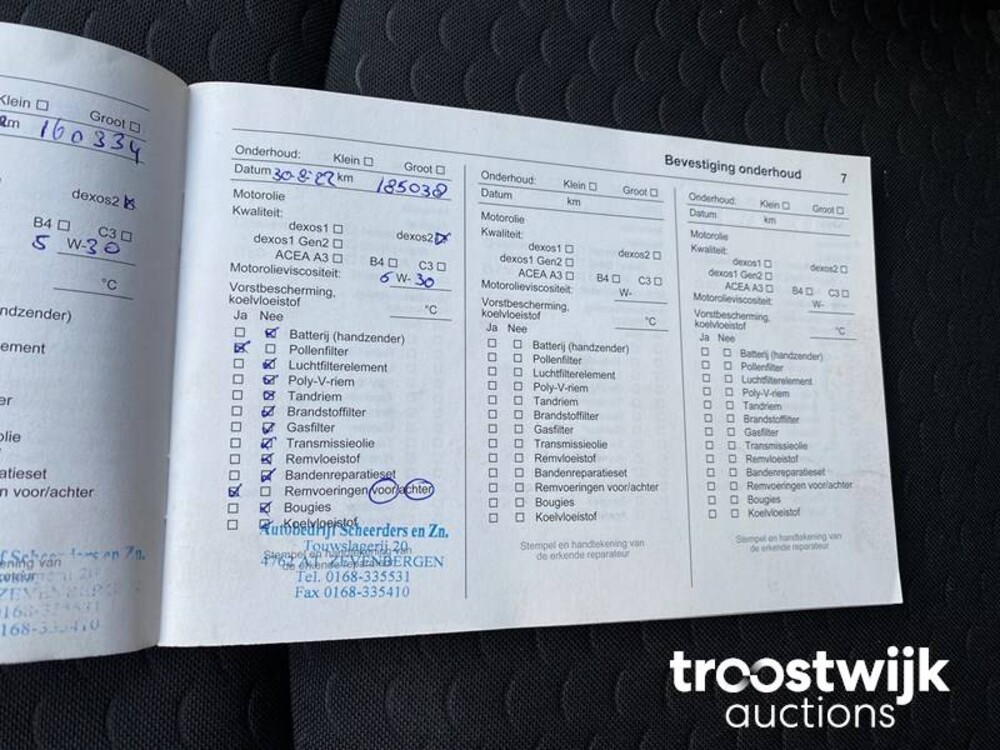 Klein ☐
Groot ☐
km 160334
dexos2 ☒
B4 ☐ C3 ☐
5 W-30
°C
ndzender)
ement
er
olie
atieset
n voor/achter
ening van
168-335410
Bevestiging onderhoud 7
Onderhoud: Klein ☐ Groot ☐
Datum 30-8-22 km 185038
Motorolie
Kwaliteit:
dexos1 ☐ dexos2 ☒
dexos1 Gen2 ☐
ACEA A3 ☐ B4 ☐ C3 ☐
Motorolieviscositeit: 5 W-30
Vorstbescherming,
koelvloeistof °C
Ja Nee
☐ ☒ Batterij (handzender)
☒ ☐ Pollenfilter
☐ ☒ Luchtfilterelement
☐ ☒ Poly-V-riem
☐ ☒ Tandriem
☐ ☒ Brandstoffilter
☐ ☒ Gasfilter
☐ ☒ Transmissieolie
☐ ☒ Remvloeistof
☐ ☒ Bandenreparatieset
☒ ☐ Remvoeringen voor/achter
☐ ☒ Bougies
☐ ☒ Koelvloeistof
Autobedrijf Scheerders en Zn.
Touwslagerij 20
Stempel en handtekening van
4762 AT ZEVENBERGEN
de erkende reparateur
Tel. 0168-335531
Fax 0168-335410
Onderhoud: Klein ☐ Groot ☐
Datum km
Motorolie
Kwaliteit:
dexos1 ☐ dexos2 ☐
dexos1 Gen2 ☐
ACEA A3 ☐ B4 ☐ C3 ☐
Motorolieviscositeit: W-
Vorstbescherming,
koelvloeistof °C
Ja Nee
☐ ☐ Batterij (handzender)
☐ ☐ Pollenfilter
☐ ☐ Luchtfilterelement
☐ ☐ Poly-V-riem
☐ ☐ Tandriem
☐ ☐ Brandstoffilter
☐ ☐ Gasfilter
☐ ☐ Transmissieolie
☐ ☐ Remvloeistof
☐ ☐ Bandenreparatieset
☐ ☐ Remvoeringen voor/achter
☐ ☐ Bougies
☐ ☐ Koelvloeistof
Stempel en handtekening van
de erkende reparateur
Onderhoud: Klein ☐ Groot ☐
Datum km
Motorolie
Kwaliteit:
dexos1 ☐ dexos2 ☐
dexos1 Gen2 ☐
ACEA A3 ☐ B4 ☐ C3 ☐
Motorolieviscositeit: W-
Vorstbescherming,
koelvloeistof °C
Ja Nee
☐ ☐ Batterij (handzender)
☐ ☐ Pollenfilter
☐ ☐ Luchtfilterelement
☐ ☐ Poly-V-riem
☐ ☐ Tandriem
☐ ☐ Brandstoffilter
☐ ☐ Gasfilter
☐ ☐ Transmissieolie
☐ ☐ Remvloeistof
☐ ☐ Bandenreparatieset
☐ ☐ Remvoeringen voor/achter
☐ ☐ Bougies
☐ ☐ Koelvloeistof
Stempel en handtekening van
de erkende reparateur
troostwijk
auctions